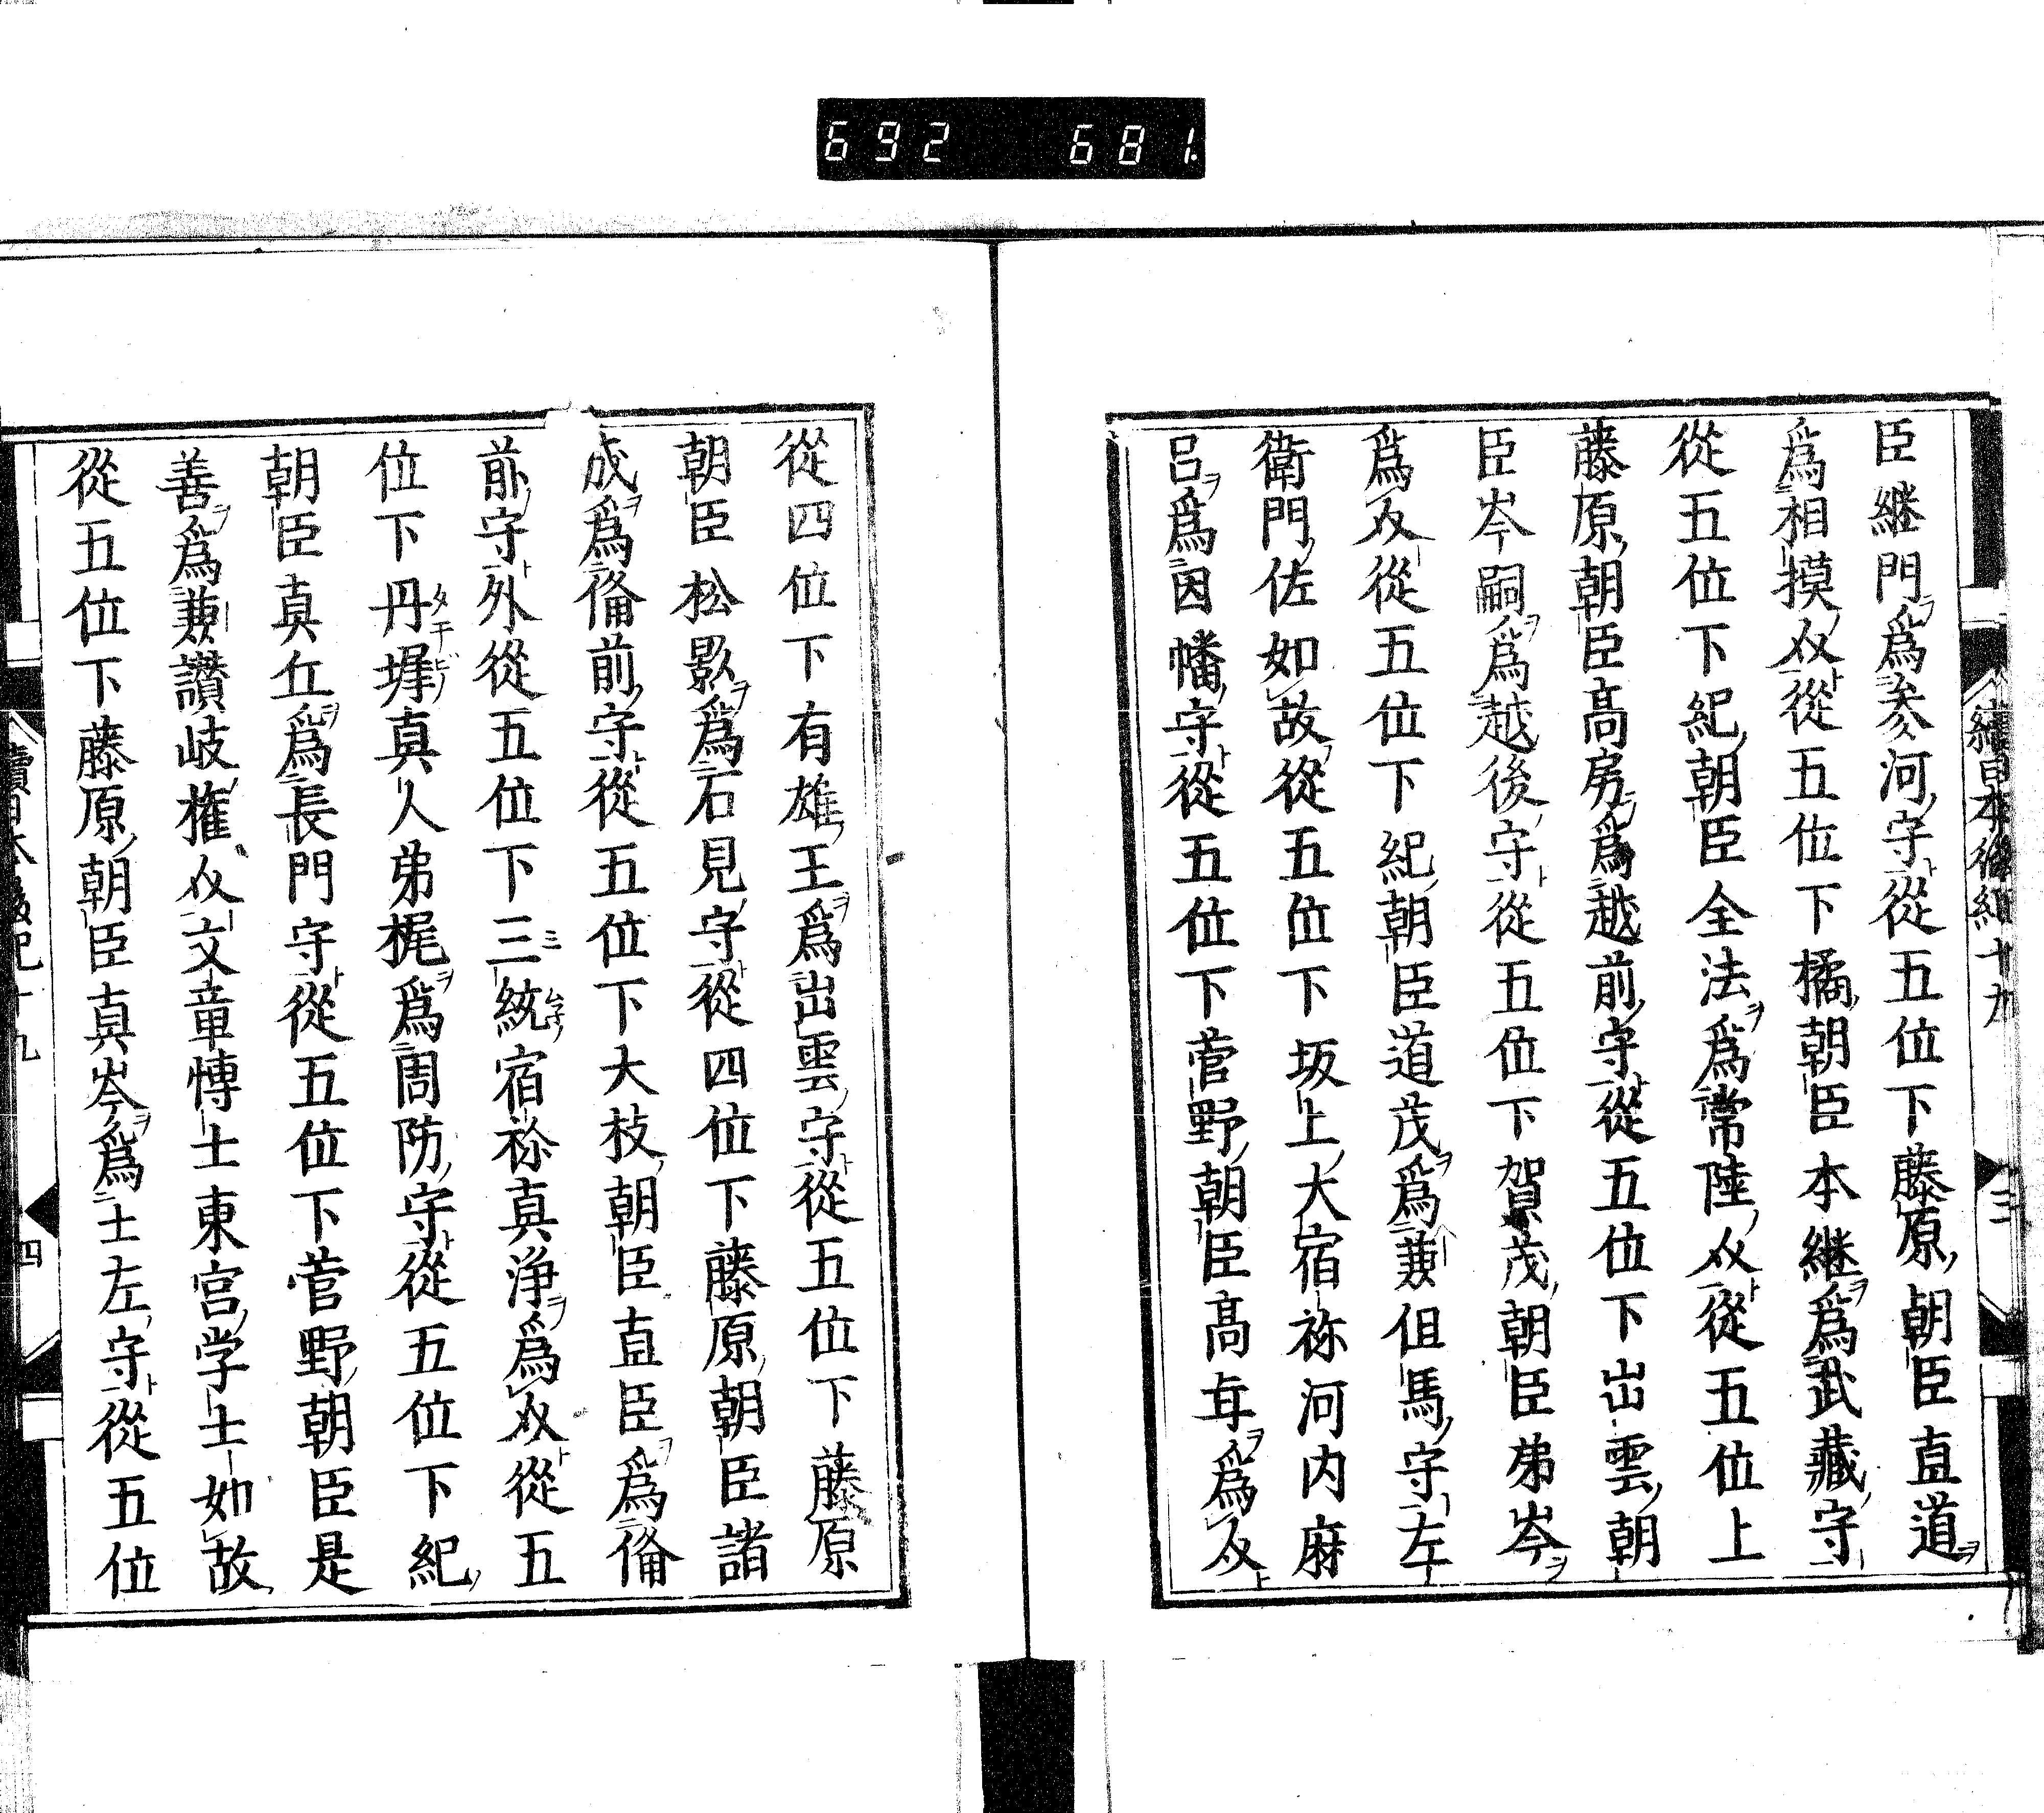 692 681.
續日本後紀十九 三
臣継門ヲ爲參河守ト從五位下藤原朝臣直道ヲ
爲相摸介ト從五位下橘朝臣本継ヲ爲武藏守
從五位下紀朝臣全法ヲ爲常陸介ト從五位上
藤原朝臣高房ヲ爲越前守ト從五位下出雲朝
臣岑嗣ヲ爲越後守ト從五位下賀茂朝臣弟岑ヲ
爲介從五位下紀朝臣道茂ヲ爲兼但馬守左
衛門佐如故從五位下坂上大宿祢河内麻
呂ヲ爲因幡守ト從五位下菅野朝臣高年ヲ爲介ト
從四位下有雄王ヲ爲出雲守ト從五位下藤原
朝臣松影ヲ爲石見守ト從四位下藤原朝臣諸
成ヲ爲備前守ト從五位下大枝朝臣直臣ヲ爲備
前守ト外從五位下三統宿祢真浄ヲ爲介ト從五
位下丹墀真人弟梶ヲ爲周防守ト從五位下紀
朝臣真丘ヲ爲長門守ト從五位下菅野朝臣是
善ヲ爲兼讃岐權介文章博士東宮学士如故
從五位下藤原朝臣真岑ヲ爲土左守ト從五位
續日本後紀十九 四